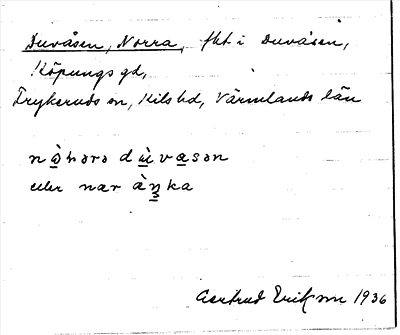 Duvåsen, Norra, fkt i Duvåsen,
Köpungs gd,
Frykeruds sn, Kils hd, Värmlands län
nò̱hərə dù̱va̱sən
eller nær àṉka
Gertrud Ericsson 1936